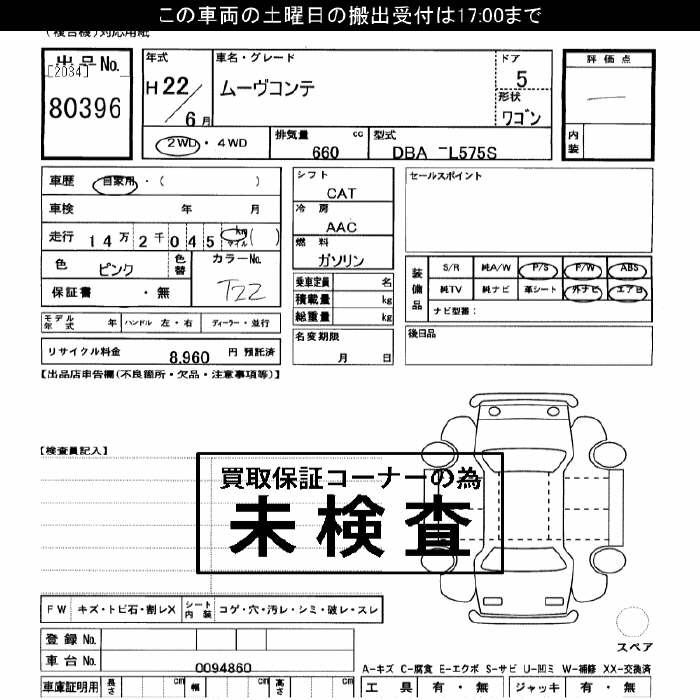 この車両の土曜日の搬出受付は17:00まで
(複合機)対応用紙
出品No.
[2034]
80396
年式
H22/6月
車名・グレード
ムーヴコンテ
ドア
5
形状
ワゴン
評価点
内装
2WD・4WD
排気量 cc
660
型式
DBA -L575S
車歴 自家用・( )
車検 年 月
走行 14万2千045 km マイル ( )
色 ピンク 色替
カラーNo.
T22
保証書 ・ 無
シフト
CAT
冷房
AAC
燃料
ガソリン
乗車定員 名
積載量 kg
総重量 kg
セールスポイント
装備品
S/R 純A/W P/S P/W ABS
純TV 純ナビ 革シート 外ナビ エアB
ナビ型番:
モデル年式 年 ハンドル 左・右 ディーラー・並行
リサイクル料金 8,960 円 預託済
名変期限
月 日
後日品
【出品店申告欄(不良箇所・欠品・注意事項等)】
【検査員記入】
買取保証コーナーの為
未検査
FW キズ・トビ石・割レX シート内装 コゲ・穴・汚レ・シミ・破レ・スレ
登録No.
車台No. 0094860
スペア
A-キズ C-腐食 E-エクボ S-サビ U-凹ミ W-補修 XX-交換済
車庫証明用 長さ cm 幅 cm 高さ cm
工具 有・無 ジャッキ 有・無